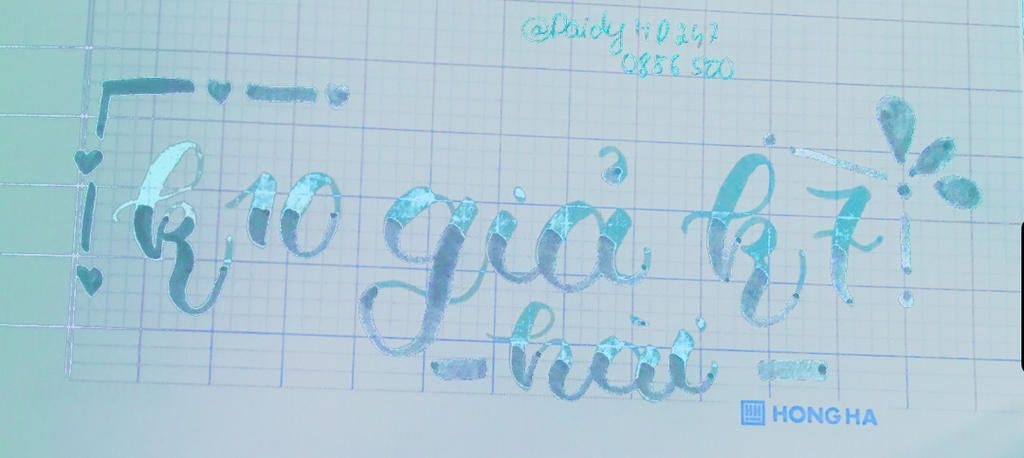 @Daidy HD247
0856 500
k10 giả k7
hài
HONG HA